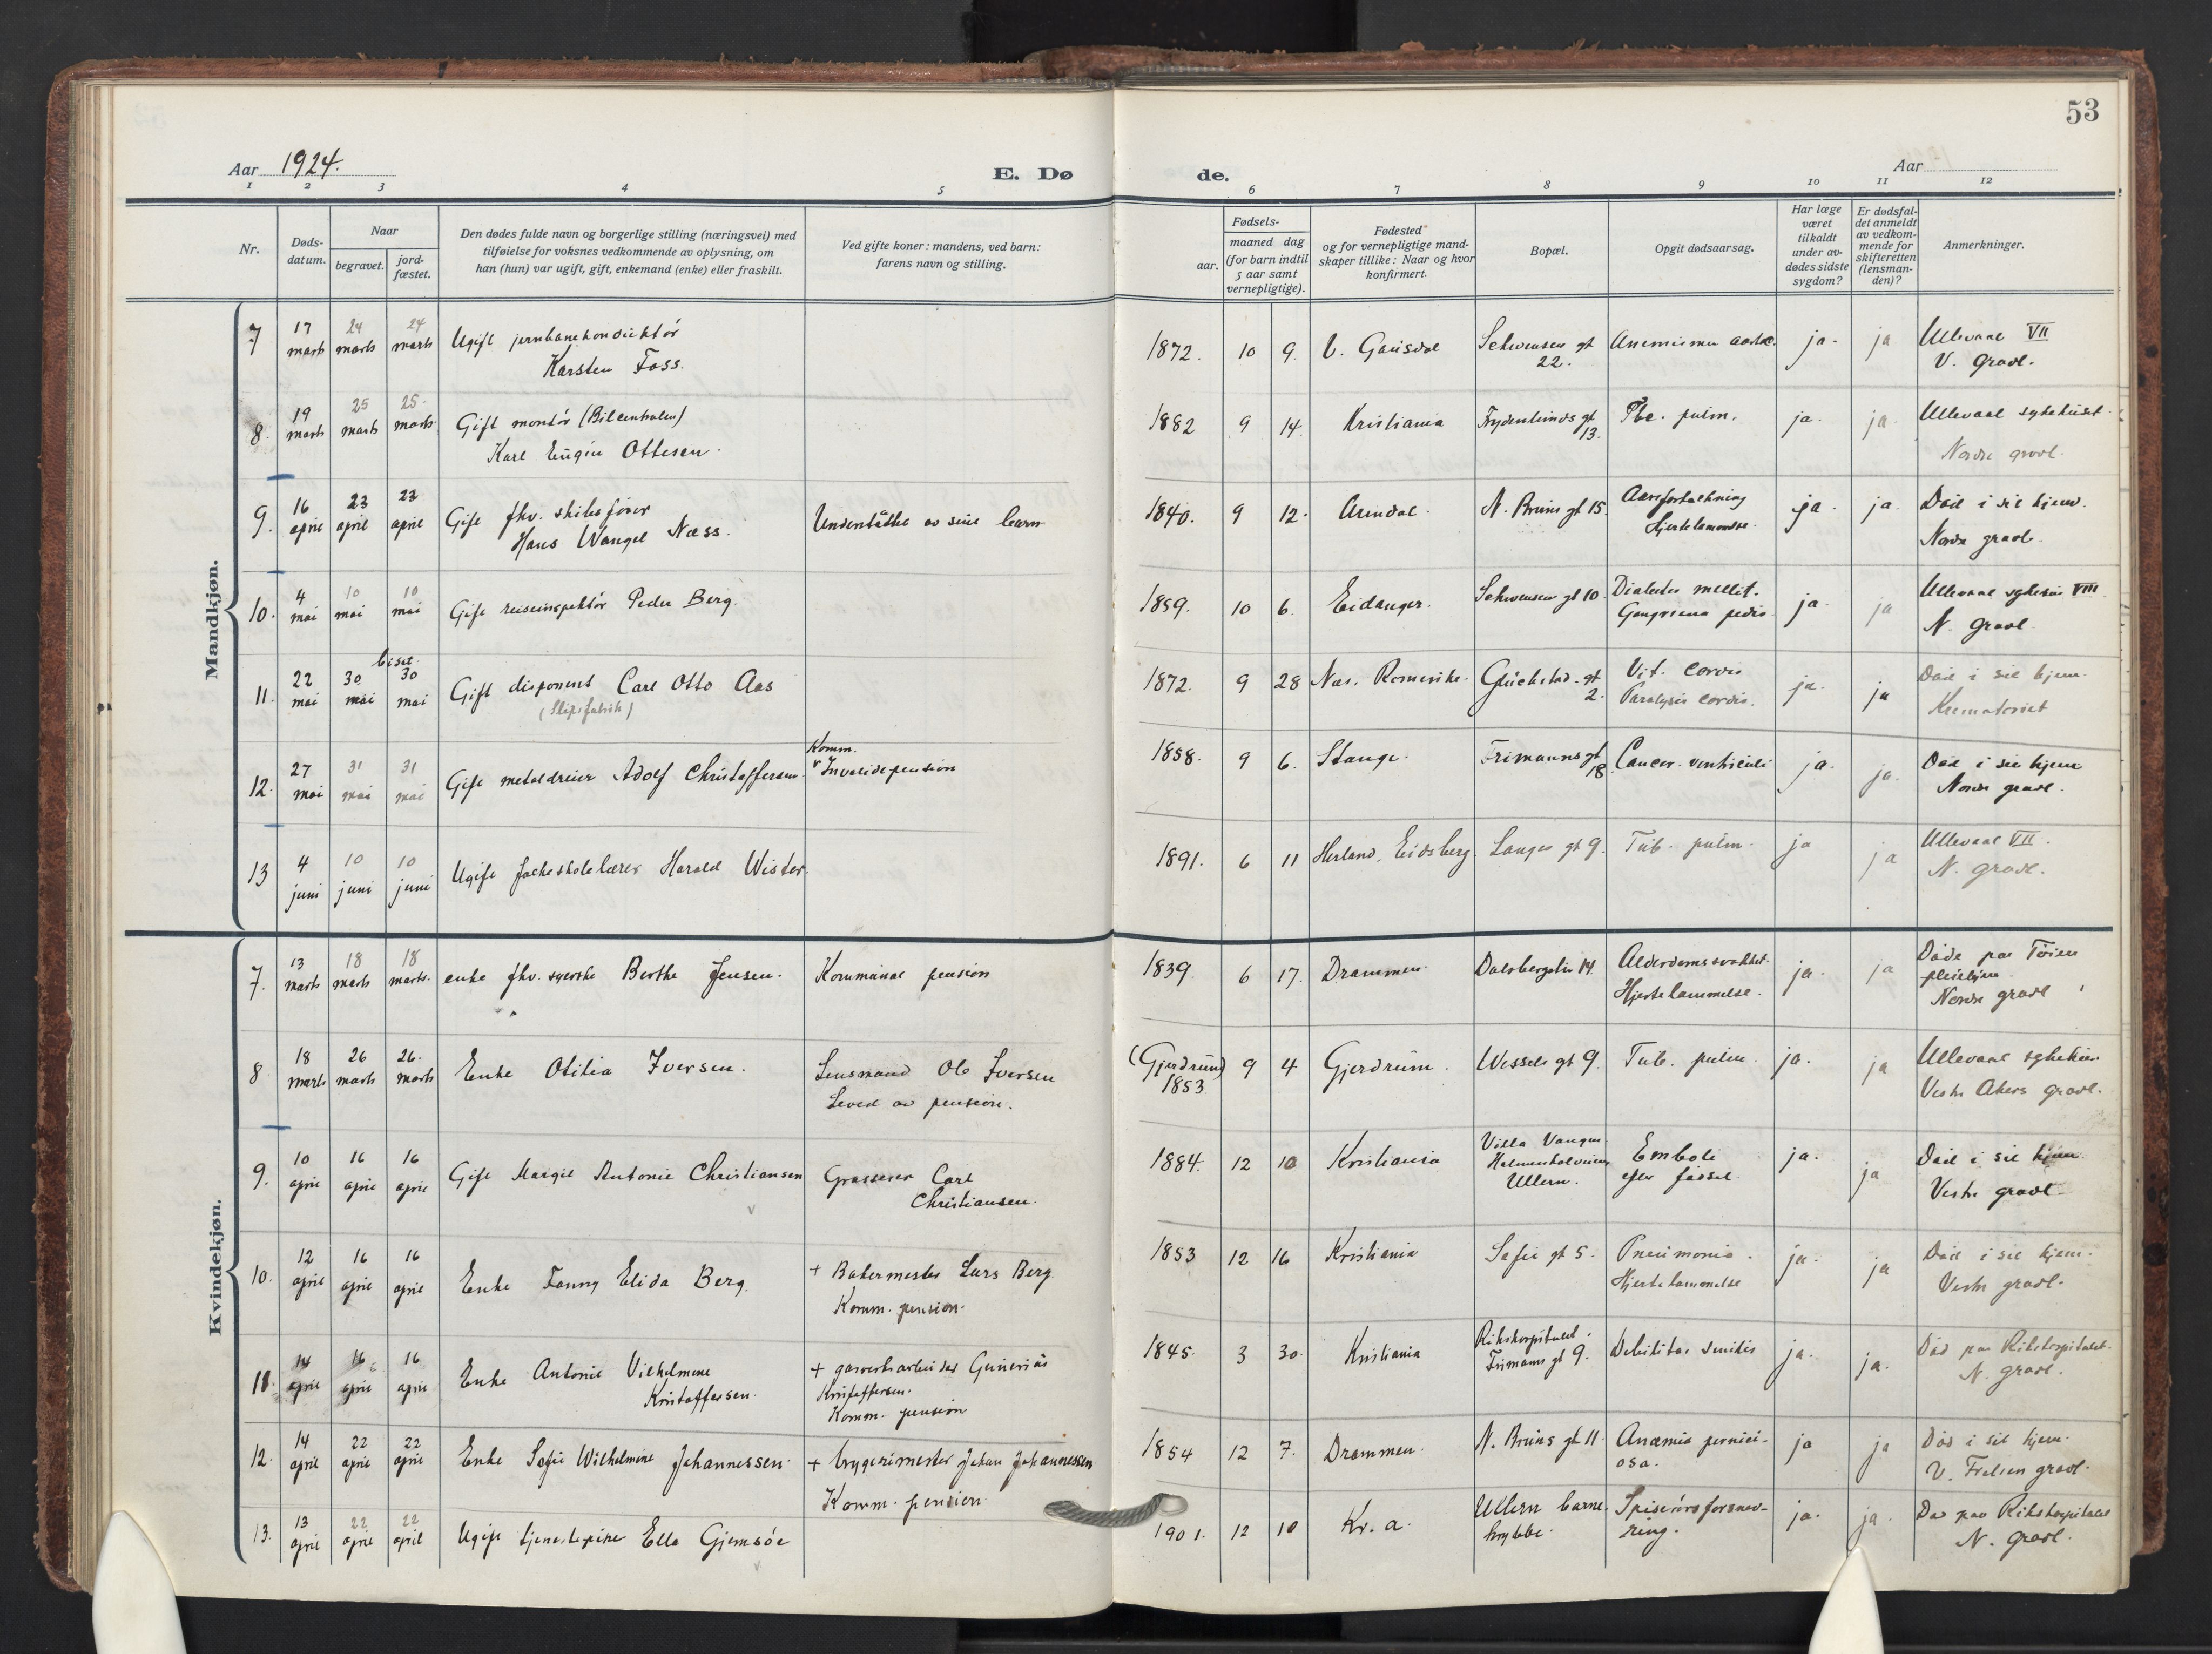 53
Aar 1924.
E. Dø
de.
Aar
1 2 3 4 5 6 7 8 9 10 11 12
Nr.
Døds-datum.
Naar
begravet.
jord-fæstet.
Den dødes fulde navn og borgerlige stilling (næringsvei) med
tilføielse for voksnes vedkommende av oplysning, om
han (hun) var ugift, gift, enkemand (enke) eller fraskilt.
Ved gifte koner: mandens, ved barn:
farens navn og stilling.
aar.
Fødsels-
maaned dag
(for barn indtil
5 aar samt
vernepligtige).
Fødested
og for vernepligtige mand-
skaper tillike: Naar og hvor
konfirmert.
Bopæl.
Opgit dødsaarsag.
Har læge
været
tilkaldt
under av-
dødes sidste
sygdom?
Er dødsfal-
det anmeldt
av vedkom-
mende for
skifteretten
(lensman-
den)?
Anmerkninger.
Mandkjøn.
7 17 marts 24 marts 24 marts Ugift jernbanekonduktør
Karsten Foss.
1872. 10 9. Gausdal Schwensens gt 22. ja. ja Ullevaal VII
V. Gravl.
8. 19 marts 25 marts 25. marts Gift montør (Bilcentralen)
Karl Eugen Ottesen.
1882 9 14. Kristiania Frydenlunds gt 13. Tbc. pulm. ja. ja Ullevaal sykehuset.
Nordre gravl.
9. 16 april 23 april 23 april Gift fhv. skibsfører
Hans Wangel Næss.
Understøttet av sine barn
1840. 9 12. Arendal. N. Bruns gt 15. Aareforkalkning
Hjertelammelse. ja. ja. Død i sit hjem.
Nordre gravl.
10. 4 mai 10 mai 10 mai Gift reiseinspektør Peder Berg.
1859. 10 6. Eidanger. Schwensens gt 10. Diabetes mellit.
Gangræna pedis. ja. ja Ullevaal sykehus VIII
N. Gravl.
11. 22 mai 30 mai biset. 30 mai Gift disponent Carl Otto Aas
(Slipsfabrik)
1872. 9 28 Nes. Romerike. Glückstad. gt 2. Vit. cordis
Paralysis cordis. ja. ja Død i sit hjem.
Krematoriet
12. 27 mai 31 mai 31 mai Gift metaldreier Adolf Christoffersen.
Komm.
Invalidepension
1858. 9 6. Stange. Frimanns gt 18. Cancer ventriculi ja. ja. Død i sit hjem
Nordre gravl.
13 4 juni 10 juni 10 juni Ugift folkeskolelærer Harald Wister.
1891. 6 11 Herland, Eidsberg. Langes gt 9. Tub. pulm. ja ja Ullevaal VII.
N. gravl.
Kvindekjøn.
7. 13 marts 18 marts 18 marts. enke fhv. syerske Berthe Jensen. Kommunal pension
1839. 6 17. Drammen. Dalsbergstien 14. Alderdomssvakhet.
Hjertelammelse. ja. ja Døde paa Tøien
pleiehjem.
Nordre gravl
8 18 marts 26 marts 26. marts Enke Otilia Iversen. Lensmand Ole Iversen
Leved av pension.
(Gjerdrum) 1853. 9 4 Gjerdrum. Wessels gt 9. Tub. pulm. ja. ja Ullevaal sykehus
Vestre Akers gravl.
9. 10 april 16 april 16 april Gift Margit Antonie Christiansen Grosserer Carl
Christiansen.
1884. 12 10 Kristiania Villa Vangen
Holmenkolveien,
Ullern. Emboli
efter fødsel. ja. ja Død i sit hjem
Vestre gravl.
10. 12 april 16 april 16 april Enke Fanny Elida Berg. + Bakermester Lars Berg.
Komm. pension.
1853 12 16 Kristiania Sofie gt 5. Pneumonia.
Hjertelammelse ja. ja Død i sit hjem.
Vestre gravl.
11. 14 april 16 april 16 april Enke Antonie Vilhelmine
Kristoffersen.
+ gasverksarbeider Gunerius
Kristoffersen.
Komm. pension
1845. 3 30. Kristiania Rikshospitalet.
Frimanns gt 9. Debilitas senilis ja. ja. Død paa Rikshospitalet.
N. gravl.
12. 14 april 22 april 22 april Enke Sofie Wilhelmine Johannessen. + brygerimester Johan Johannessen
Komm. pension.
1854 12 7. Drammen. N. Bruns gt 11. Anæmia pernici-
osa. ja ja Død i sit hjem.
V. Frelsers gravl.
13. 13 april 22 april 22 april Ugift tjenestepike Ella Gjemsøe
1901. 12 10 Kr. a. Ullern barne-
krybbe. Spiserørsforsnev-
ring. ja. ja. Død paa Rikshospitalet
N. Gravl.